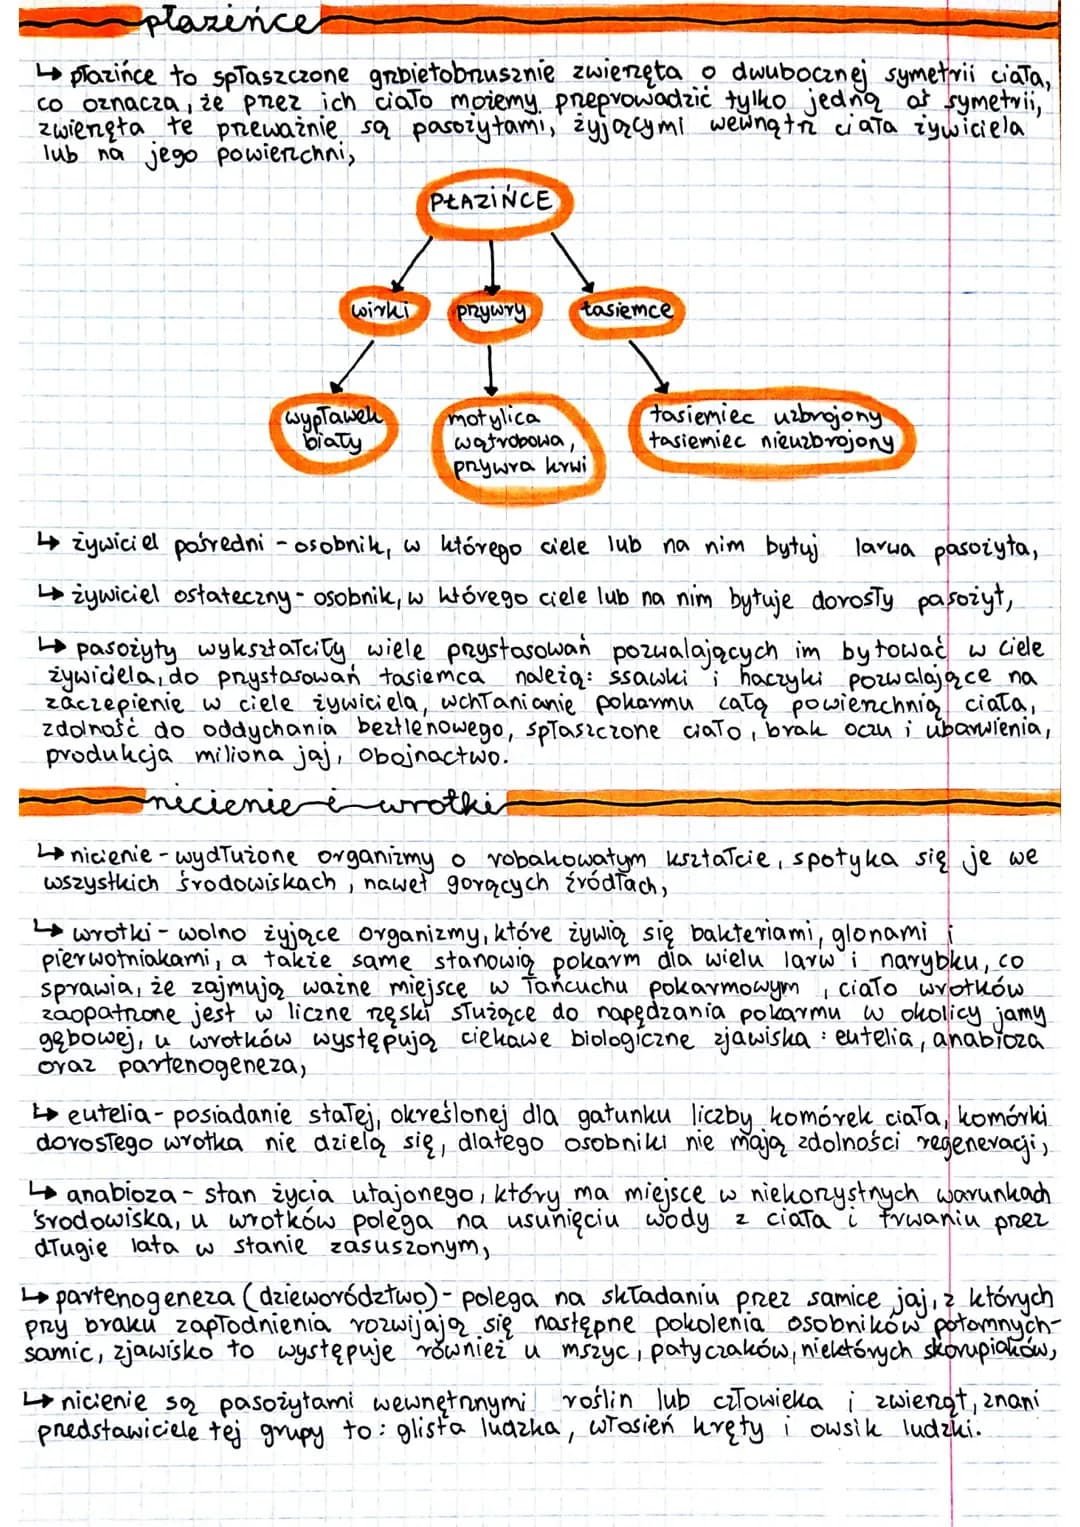 płazińce
↳ płazińce to spłaszczone grzbietobrzusznie zwierzęta o dwubocznej symetrii ciała,
co oznacza, że przez ich ciało możemy przeprowadzić tylko jedną oś symetrii,
zwierzęta te przeważnie są pasożytami, żyjącymi wewnątrz ciała żywiciela
lub na jego powierzchni,
PŁAZIŃCE
wirki przywry tasiemce
wypławek
biały
motylica
wątrobowa,
przywra krwi
tasiemiec uzbrojony
tasiemiec nieuzbrojony
↳ żywiciel pośredni - osobnik, w którego ciele lub na nim bytuj larwa pasożyta,
↳ żywiciel ostateczny - osobnik, w którego ciele lub na nim bytuje dorosły pasożyt,
↳ pasożyty wykształciły wiele przystosowań pozwalających im bytować w ciele
żywiciela, do przystosowań tasiemca należą: ssawki i haczyki pozwalające na
zaczepienie w ciele żywiciela, wchłanianie pokarmu całą powierzchnią ciała,
zdolność do oddychania beztlenowego, spłaszczone ciało, brak oczu i ubarwienia,
produkcja miliona jaj, obojnactwo.
nicienie i wrotki
↳ nicienie - wydłużone organizmy o robakowatym kształcie, spotyka się je we
wszystkich środowiskach, nawet gorących źródłach,
↳ wrotki - wolno żyjące organizmy, które żywią się bakteriami, glonami i
pierwotniakami, a także same stanowią pokarm dla wielu larw i narybku, co
sprawia, że zajmują ważne miejsce w łańcuchu pokarmowym, ciało wrotków
zaopatrzone jest w liczne rzęski służące do napędzania pokarmu w okolicy jamy
gębowej, u wrotków występują ciekawe biologiczne zjawiska: eutelia, anabioza
oraz partenogeneza,
↳ eutelia - posiadanie stałej, określonej dla gatunku liczby komórek ciała, komórki
dorosłego wrotka nie dzielą się, dlatego osobniki nie mają zdolności regeneracji,
↳ anabioza - stan życia utajonego, który ma miejsce w niekorzystnych warunkach
środowiska, u wrotków polega na usunięciu wody z ciała i trwaniu przez
długie lata w stanie zasuszonym,
↳ partenogeneza (dzieworództwo) - polega na składaniu przez samice jaj, z których
przy braku zapłodnienia rozwijają się następne pokolenia osobników potomnych-
samic, zjawisko to występuje również u mszyc, patyczaków, niektórych skorupiaków,
↳ nicienie są pasożytami wewnętrznymi roślin lub człowieka i zwierząt, znani
przedstawiciele tej grupy to: glista ludzka, włosień kręty i owsik ludzki.